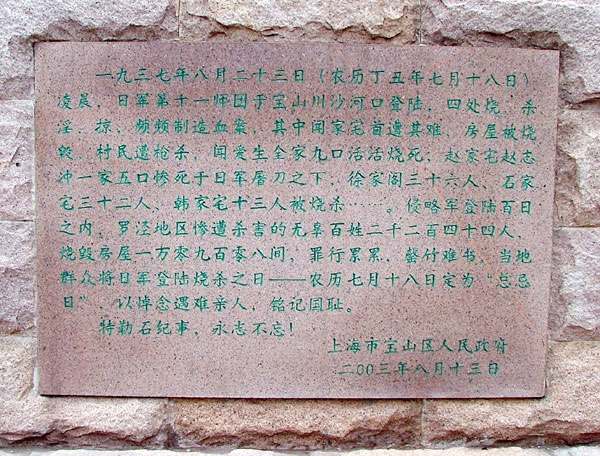 一九三七年八月二十三日（农历丁丑年七月十八日）
凌晨，日军第十一师团于宝山川沙河口登陆，四处烧、杀
淫、掠，频频制造血案，其中闻家宅首遭其难，房屋被烧
毁，村民遭枪杀，闻爱生全家九口活活烧死；赵家宅赵志
冲一家五口惨死于日军屠刀之下，徐家阁三十六人、石家
宅三十二人、韩家宅十三人被烧杀……。侵略军登陆百日
之内，罗泾地区惨遭杀害的无辜百姓二千二百四十四人，
烧毁房屋一万零九百零八间，罪行累累，罄竹难书。当地
群众将日军登陆烧杀之日——农历七月十八日定为“总忌
日”，以悼念遇难亲人，铭记国耻。
特勒石纪事，永志不忘！
上海市宝山区人民政府
二〇〇三年八月十三日